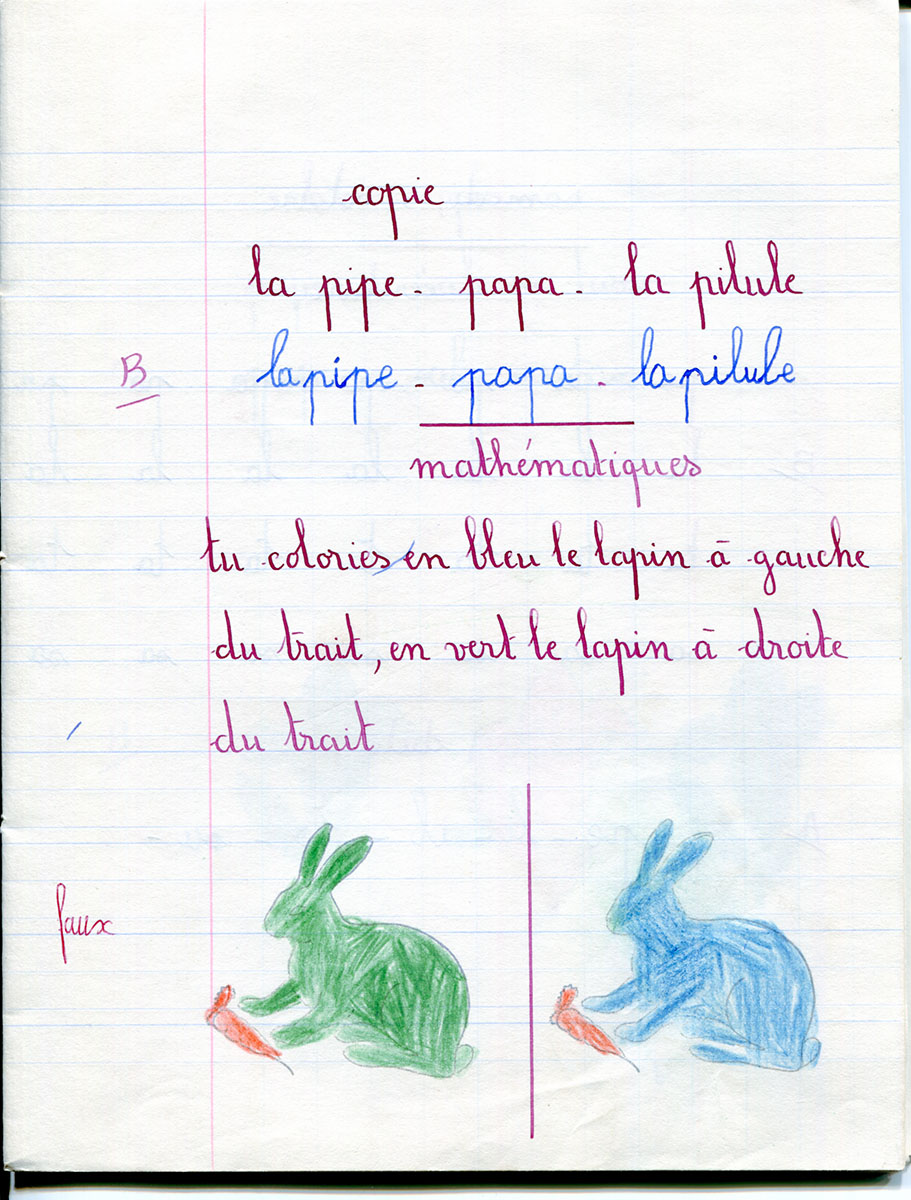 copie
la pipe - papa - la pilule
B la pipe - papa - la pilule
mathématiques
tu colories en bleu le lapin à gauche
du trait, en vert le lapin à droite
du trait
faux